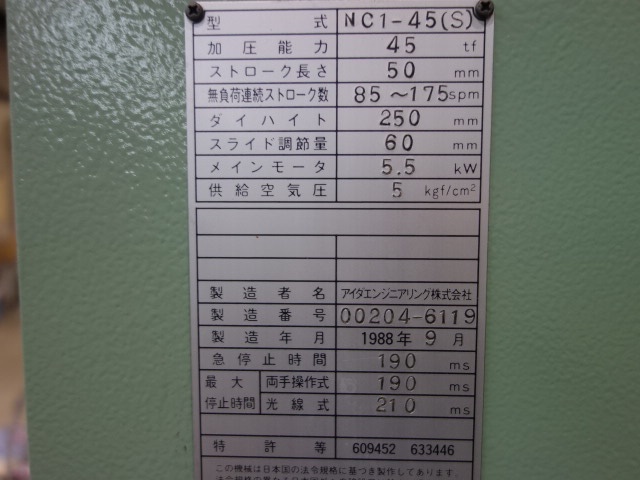 型式 NC1-45(S)
加圧能力 45 tf
ストローク長さ 50 mm
無負荷連続ストローク数 85～175spm
ダイハイト 250 mm
スライド調節量 60 mm
メインモータ 5.5 kW
供給空気圧 5 kgf/cm²
製造者名 アイダエンジニアリング株式会社
製造番号 00204-6119
製造年月 1988年 9月
急停止時間 190 ms
最大停止時間 両手操作式 190 ms
光線式 210 ms
特許等 609452 633446
この機械は日本国の法令規格に基づき製作してあります。